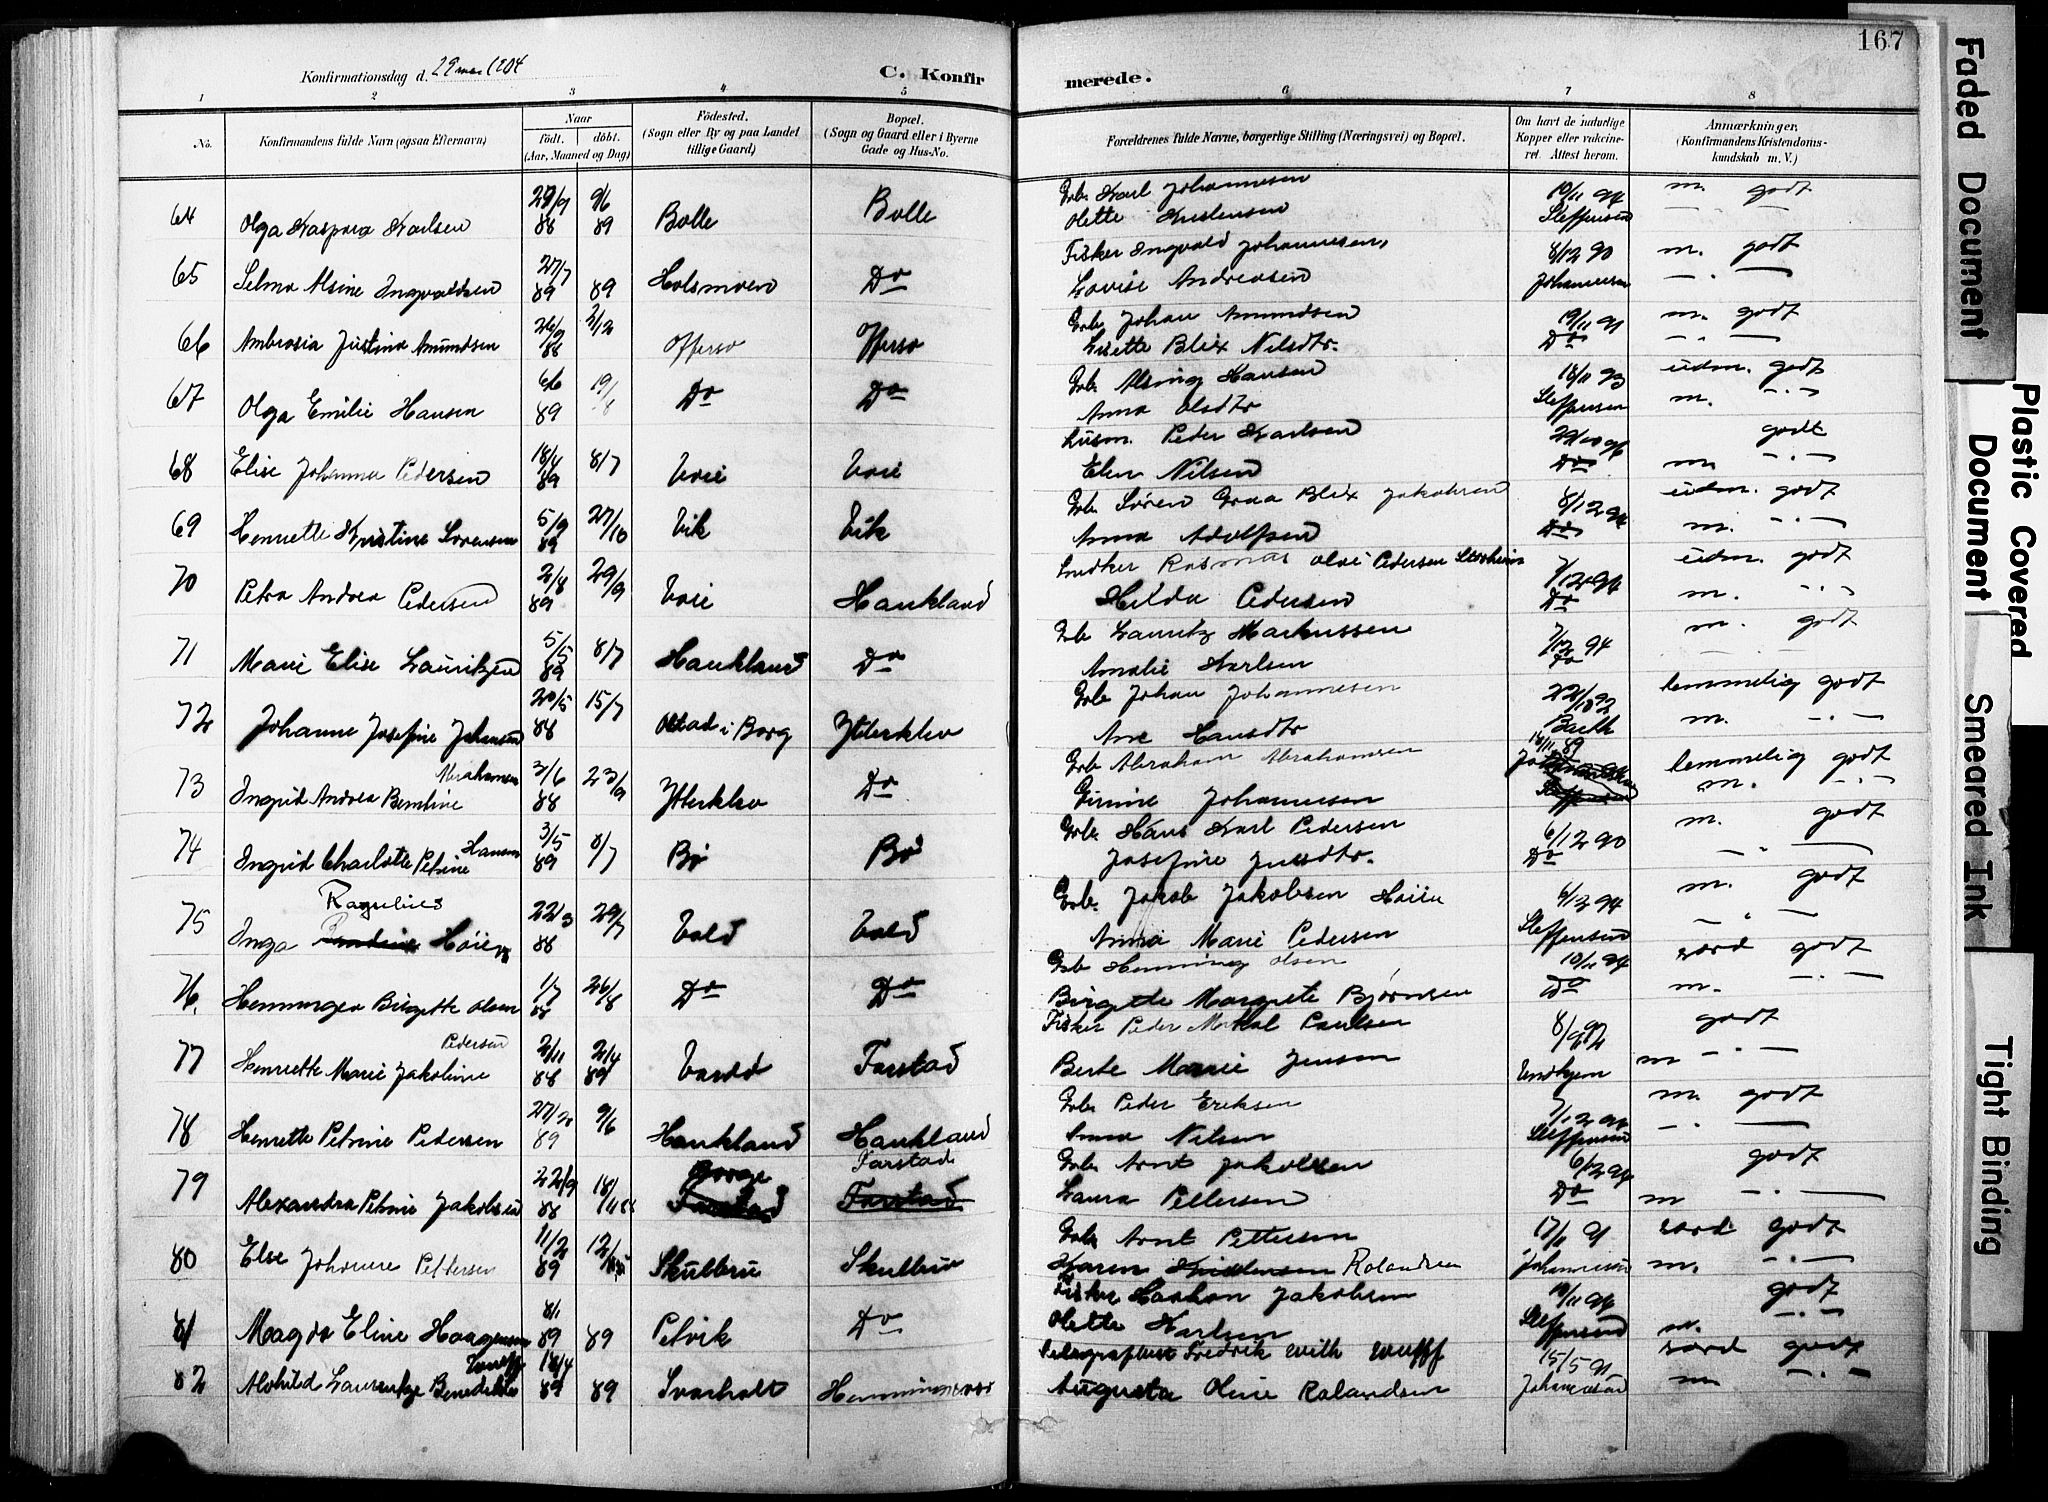 167
Konfirmationsdag d. 29 mai 1904
C. Konfirmerede.
1 2 3 4 5 6 7 8
No. Konfirmandens fulde Navn (ogsaa Efternavn) Naar født. døbt. (Aar, Maaned og Dag) Fødested. (Sogn eller By og paa Landet tillige Gaard) Bopæl. (Sogn og Gaard eller i Byerne Gade og Hus-No. Forældrenes fulde Navne, borgerlige Stilling (Næringsvei) og Bopæl. Om havt de naturlige Kopper eller vaccineret. Attest herom. Anmærkninger. (Konfirmandens Kristendomskundskab m. V.)
64 Olga Kaspara Karlsen 29/9 88 9/6 89 Bolle Bolle Grb. Karl Johannesen 10/11 94 m. godt
Olette Kristensen Steffensen
65 Selma Alsine Ingvaldsen 27/7 89 89 Holsmoen Do Fisker Ingvald Johannesen, 8/12 90 m. godt
Lovise Andreasen Johannesen
66 Ambrosia Justina Amundsen 26/9 88 2/12 Offersø Offersø Grb. Johan Amundsen 19/11 91 m. godt
Lisette Blix Nilsdtr. Do
67 Olga Emilie Hansen 6/6 89 Do Do Grb. Alsing Hansen 18/11 93 udm. godt
Anna Olsdtr Steffensen m.
68 Elise Johanna Pedersen 18/4 89 8/7 Voie Voie Husm. Peder Karlsen godt
Elen Nilsen Do m.
69 Henriette Kristine Sørensen 5/9 89 27/10 Vik Vik Grb Søren Graa Blix Jakobsen 8/12 94 udm. godt
Anna Adolfsen Do m.
70 Petra Andrea Pedersen 2/8 89 29/9 Voie Haukland Snedker Rasmus Olai Pedersen 7/12 94 udm. godt
Hilda Pedersen Do m.
71 Marie Elise Lauritzen 5/5 89 8/7 Haukland Do Grb Lauritz Markussen 7/12 94 m. godt
Amalie Karlsen Do
72 Johanne Josefine Johansen 20/5 88 15/7 Olstad i Borg Ytterklev Grb. Johan Johannesen temmelig godt
Ane Hansdtr m.
73 Ingrid Andrea Berntine Abrahamsen 3/6 88 23/9 Ytterklev Do Grb Abraham Abrahamsen 89 temmelig godt
Johannesen m.
74 Ingrid Charlotte Petrine Hansen 3/5 89 8/7 Bø Bø Grb. Hans Karl Pedersen 6/12 90 m. godt
Josefine Jensdtr. Do
75 Inga Ragnlius Høien 22/3 88 29/7 Vold Vold Grb. Jakob Jakobsen Høien 6/12 94 m. godt
Anna Marie Pedersen Steffensen
76. Henningea Birgitte Olsen 1/7 88 26/8 Do Do Grb Henning Olsen 10/11 94 særd godt
Birgitte Margrete Bjørnsen Do m.
77 Henriette Marie Jakobine Pedersen 2/11 88 2/4 89 Farstad Fisker Peder Paulsen godt
Berte Marie Jensen m
78 Henriette Petrine Pedersen 89 9/6 Haukland Haukland Grb Peder Eriksen m. godt
Anna Nilsen Steffensen
79 Alexandra Petrine Jakobsen 22/9 88 18/11 88 Borge Farstad Farstad Farstad Grb Arnt Jakobsen 6/12 94 godt
Laura Pettersen Do m
80 Else Johanne Pettersen 11/2 89 Skulbru Skulbru Grb Arnt Pettersen særd godt
Karen Kristensen Rolandsen Johannesen m.
81 Magda Eline Haagensen 8/1 89 89 Petvik Do Fisker Haakon Jakobsen 10/11 94 godt
Olette Karlsen Steffensen m.
82 Alvhild Laurentze Benedikte Wulff 18/4 89 89 Svarholt Henningsvær Telegrafbest Fredrik With Wulff 15/5 91 særd godt
Augusta Oline Rolandsen Johannesen m
Faded Document
Plastic Covered Document
Smeared Ink
Tight Binding